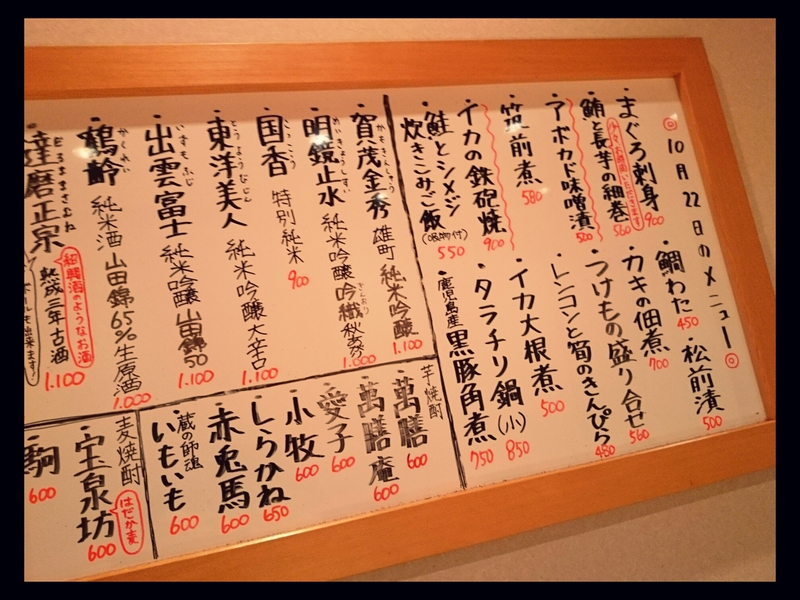 ◎10月22日のメニュー◎
まぐろ刺身 900
鮪と長芋の細巻 560
アボカド味噌漬 500
筑前煮 580
イカの鉄砲焼 900
鮭とシメジ
炊きこみご飯 550
鯛わた 450
松前漬 500
カキの佃煮 700
つけもの盛り合せ 560
レンコンと筍のきんぴら 480
イカ大根煮 500
タラチリ鍋(小) 850
鹿児島産 黒豚角煮 750
賀茂金秀 雄町 純米吟醸 1.100
明鏡止水 純米吟醸 吟織 秋あがり 1.000
国香 特別純米 900
東洋美人 純米吟醸 大辛口 1.100
出雲富士 純米吟醸 山田錦50 1.100
鶴齢 純米酒 山田錦65% 生原酒 1.000
達磨正宗 熟成三年古酒 1.100
紹興酒のようなお酒
芋焼酎
萬膳 600
萬膳庵 600
愛子 600
小牧 600
しらかね 650
赤兎馬 600
蔵の師魂
いもいも 600
麦焼酎
宝泉坊 600
はだか麦
駒 600